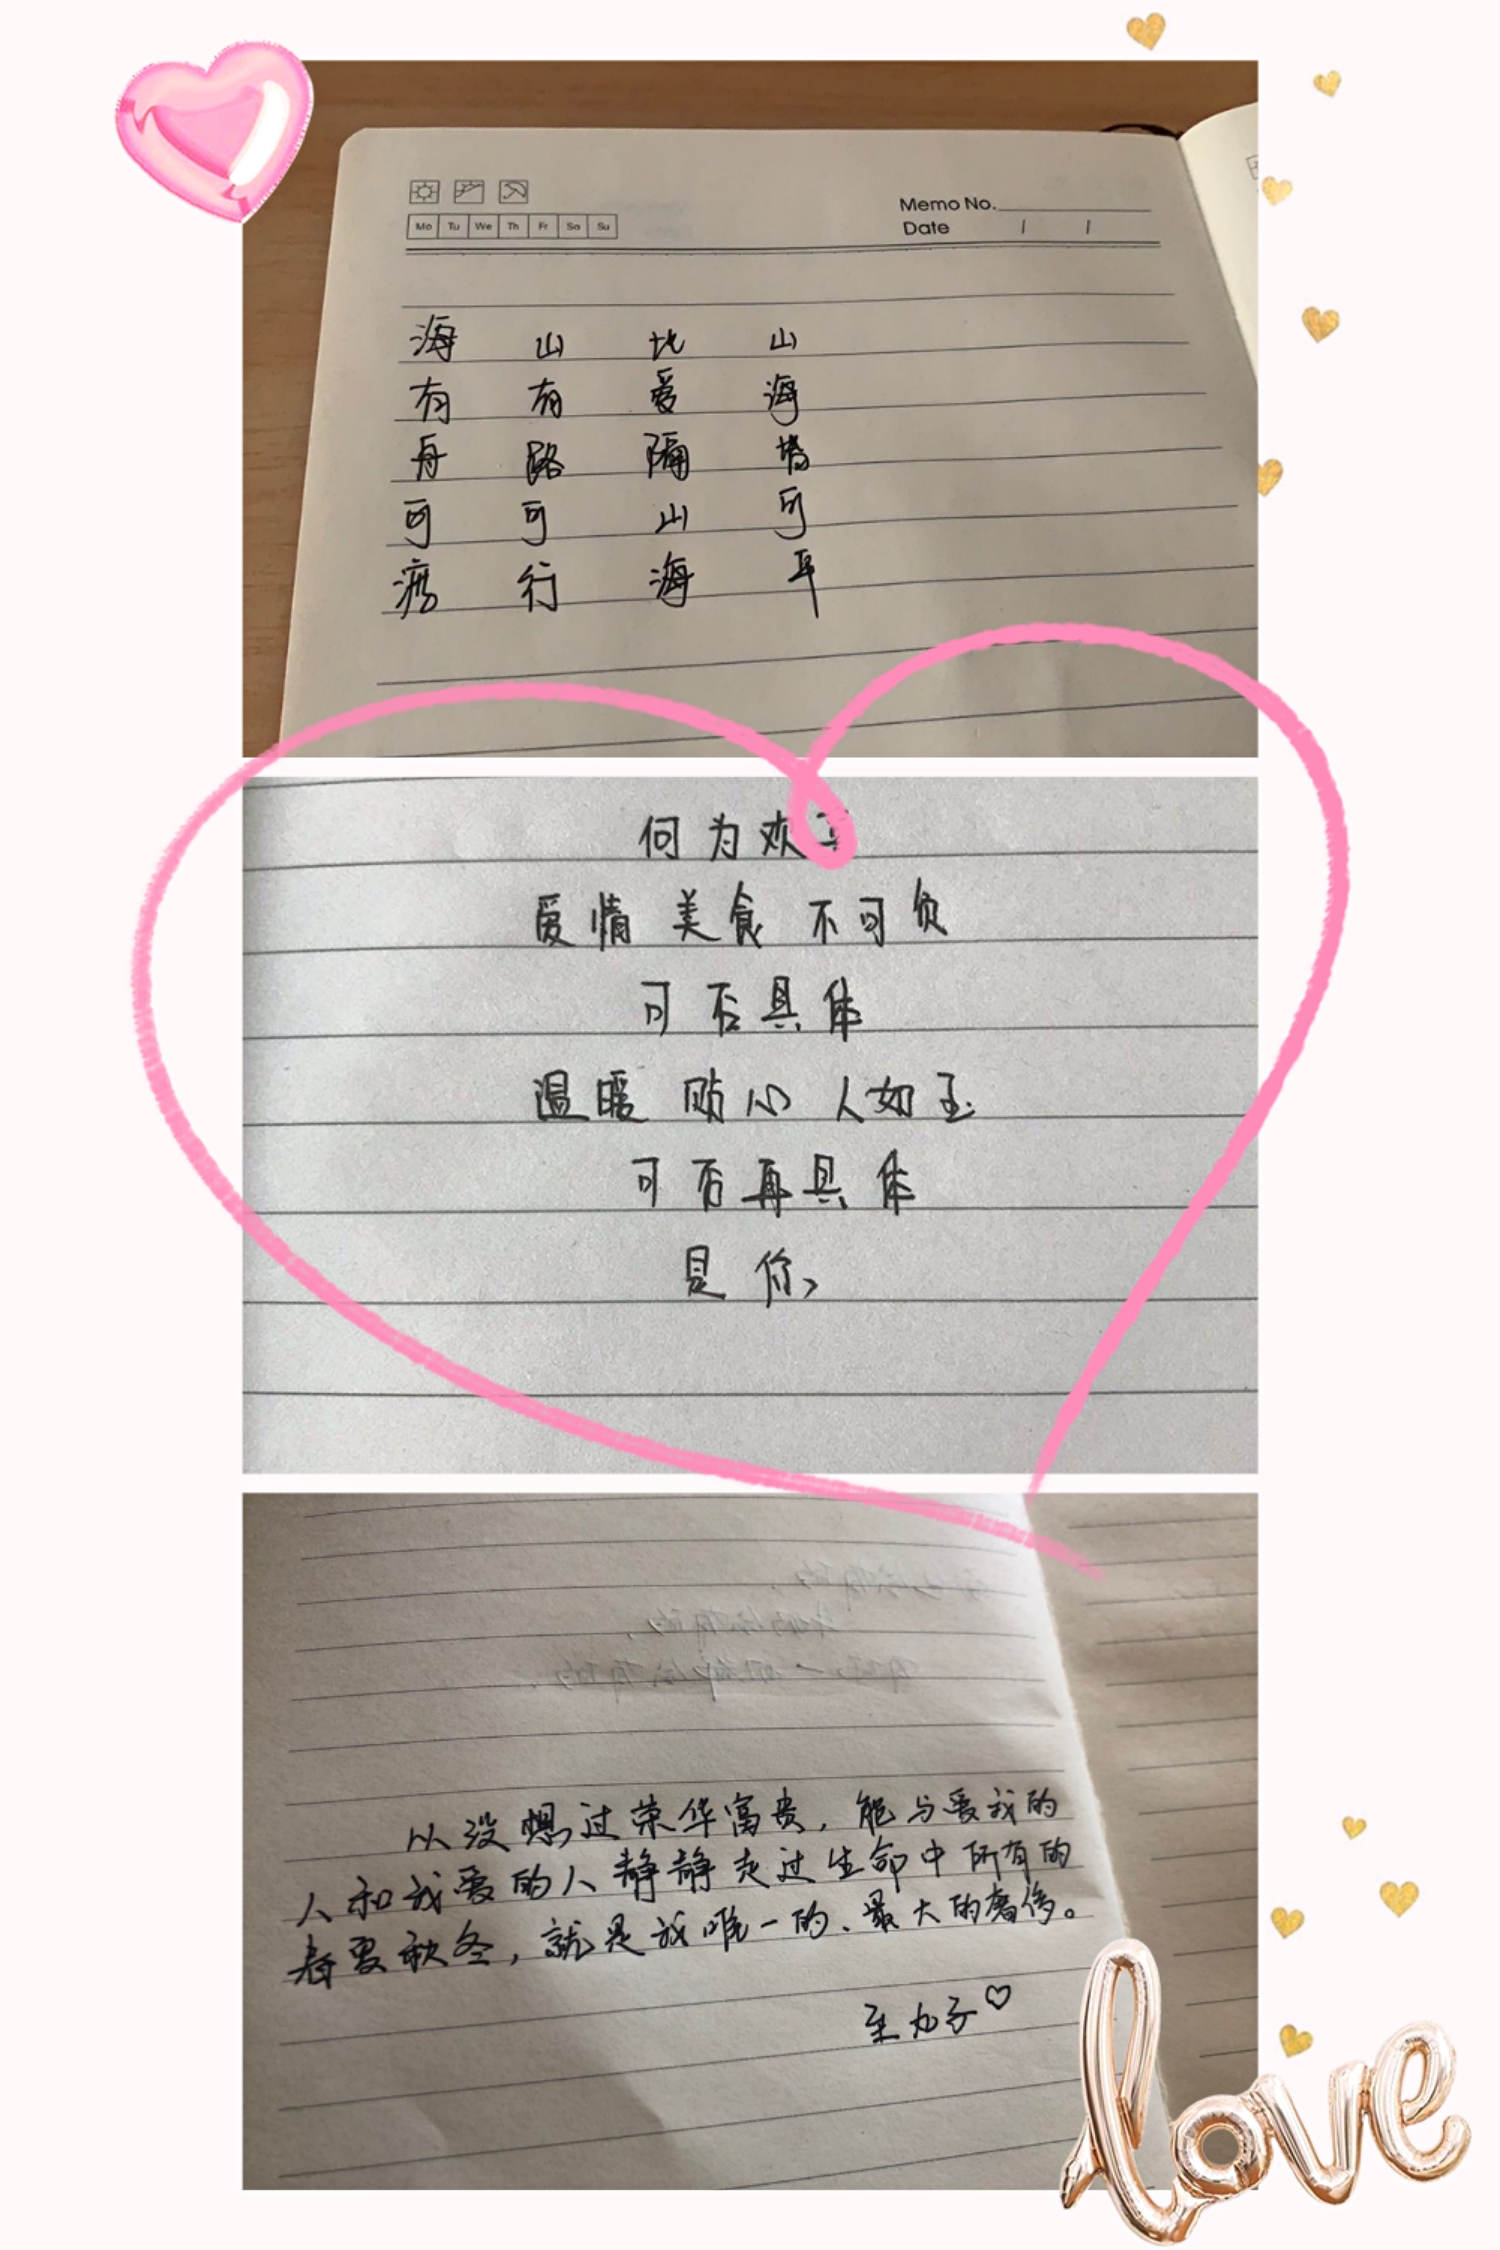 Mo Tu We Th Fr Sa Su
Memo No.
Date / /
海有舟可渡
山有路可行
此爱隔山海
山海皆可平
何为欢
爱情 美食 不可负
可否具体
温暖 贴心 人如玉
可否再具体
是你
从没想过荣华富贵，能与爱我的
人和我爱的人静静走过生命中所有的
春夏秋冬，就是我唯一的、最大的奢侈。
丸子♡
love